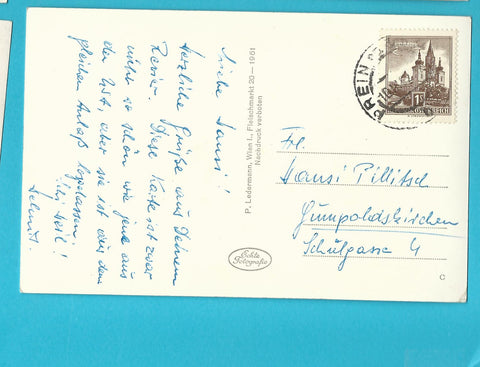 Liebe Hansi!
Herzliche Grüße aus Deinem
Revier. Diese Karte ist zwar
nicht so schön wie jene aus
der Ost, aber sie ist aus dem
gleichen Anlaß losgelassen.
Helmut.
P. Ledermann, Wien I., Fleischmarkt 20 – 1961
Nachdruck verboten
Echte
Fotografie
PREIN
1S
Frl.
Hansi Pillitsch
Gumpoldskirchen
Schulgasse 4
C